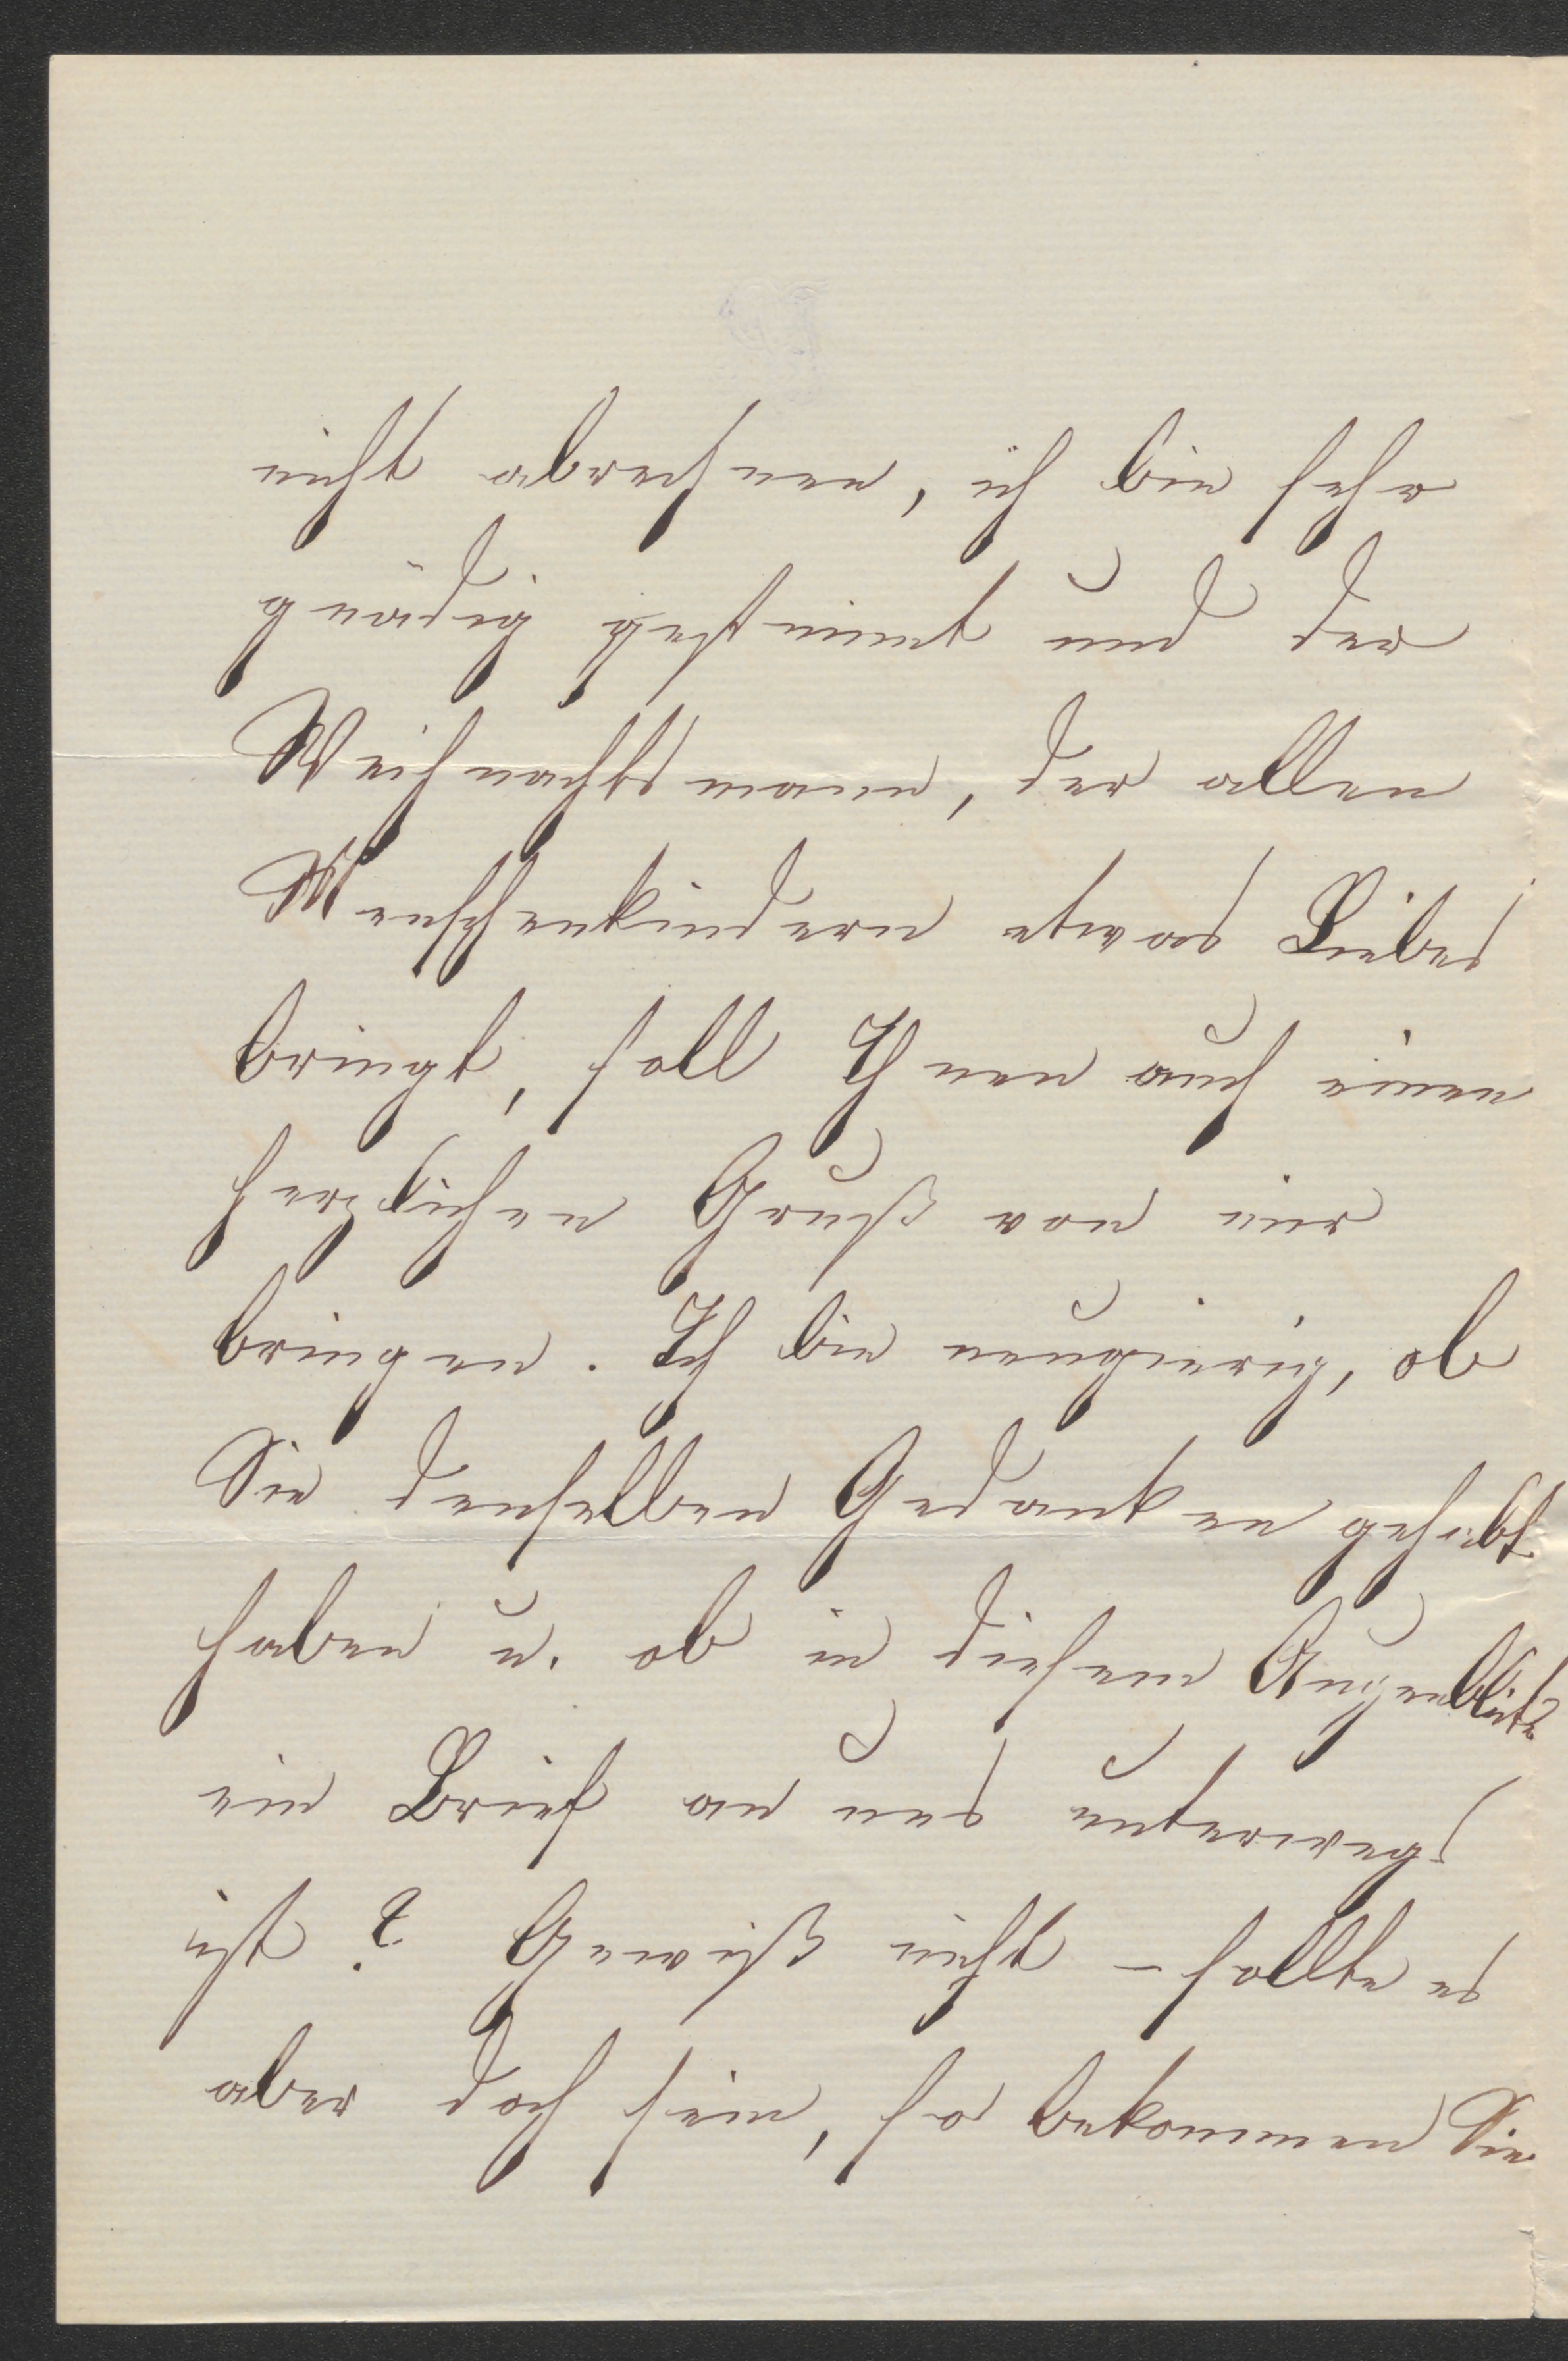 nicht abrechnen, ich bin sehr
gnädig gestimmt und der
Weihnachtsmann, der allen
Menschenkindern etwas Liebes
bringt, soll Ihnen auch einen
herzlichen Gruß von mir
bringen. Ich bin neugierig, ob
Sie denselben Gedanken gehabt
haben u. ob in diesem Augenblicke
ein Brief an uns unterwegs
ist? Gewiß nicht – sollte es
aber doch sein, so bekommen Sie